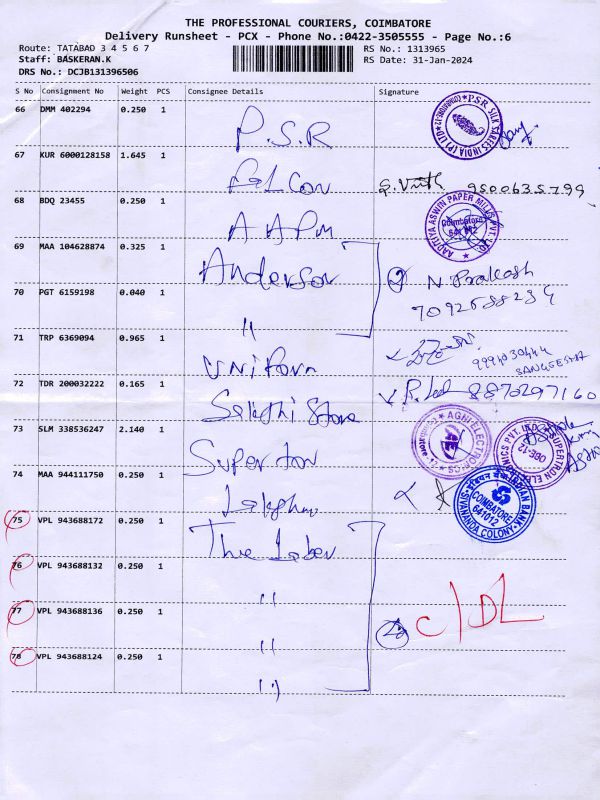 THE PROFESSIONAL COURIERS, COIMBATORE
Delivery Runsheet - PCX - Phone No.:0422-3505555 - Page No.:6
Route: TATABAD 3 4 5 6 7
RS No.: 1313965
Staff: BASKERAN.K
RS Date: 31-Jan-2024
DRS No.: DCJB131396506
S No Consignment No Weight PCS Consignee Details Signature
66 DMM 402294 0.250 1
P.S.R
PSR SILK SAREES INDIA (P) LTD COIMBATORE-12
67 KUR 6000128158 1.645 1
Falcon
9500635799
68 BDQ 23455 0.250 1
AAPM
AADITYA ASWIN PAPER MILLS PVT. LTD.
Coimbatore
641 012
69 MAA 104628874 0.325 1
Anderson
② N. Prakash
70 PGT 6159198 0.040 1
"
71 TRP 6369094 0.965 1
Uniform
SANGEETHA
72 TDR 200032222 0.165 1
Sakthi Store
8870297160
73 SLM 338536247 2.140 1
Superton
AGNI ELECTRO
SUPERTRON ELECTRONICS PVT. LTD.
CBE-12
74 MAA 944111750 0.250 1
INDIAN BANK
COIMBATORE
641012
SIVANANDA COLONY
75 VPL 943688172 0.250 1
76 VPL 943688132 0.250 1
"
77 VPL 943688136 0.250 1
"
C/DL
78 VPL 943688124 0.250 1
"